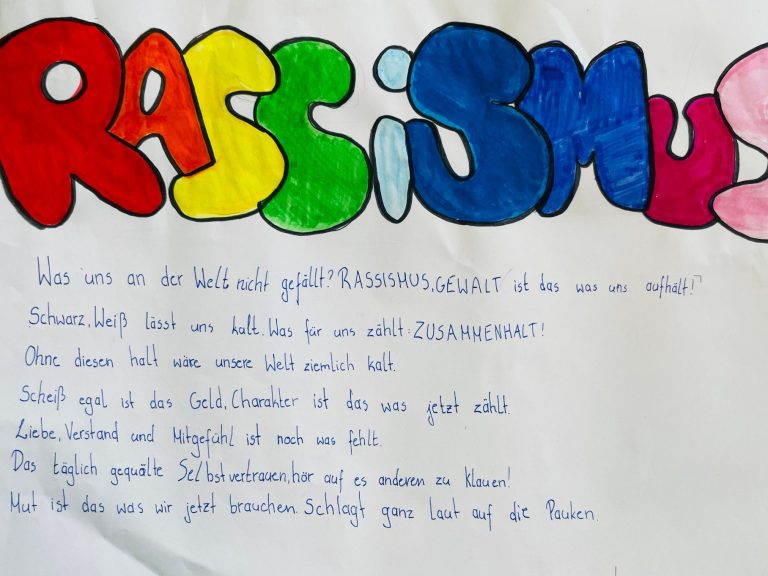 RASSiSMUS
Was uns an der Welt nicht gefällt? RASSISMUS, GEWALT ist das was uns aufhält!
Schwarz, Weiß lässt uns kalt. Was für uns zählt: ZUSAMMENHALT!
Ohne diesen halt wäre unsere Welt ziemlich kalt.
Scheiß egal ist das Geld, Charakter ist das was jetzt zählt.
Liebe, Verstand und Mitgefühl ist noch was fehlt.
Das täglich gequälte Selbstvertrauen, hör auf es anderen zu klauen!
Mut ist das was wir jetzt brauchen. Schlagt ganz laut auf die Pauken.